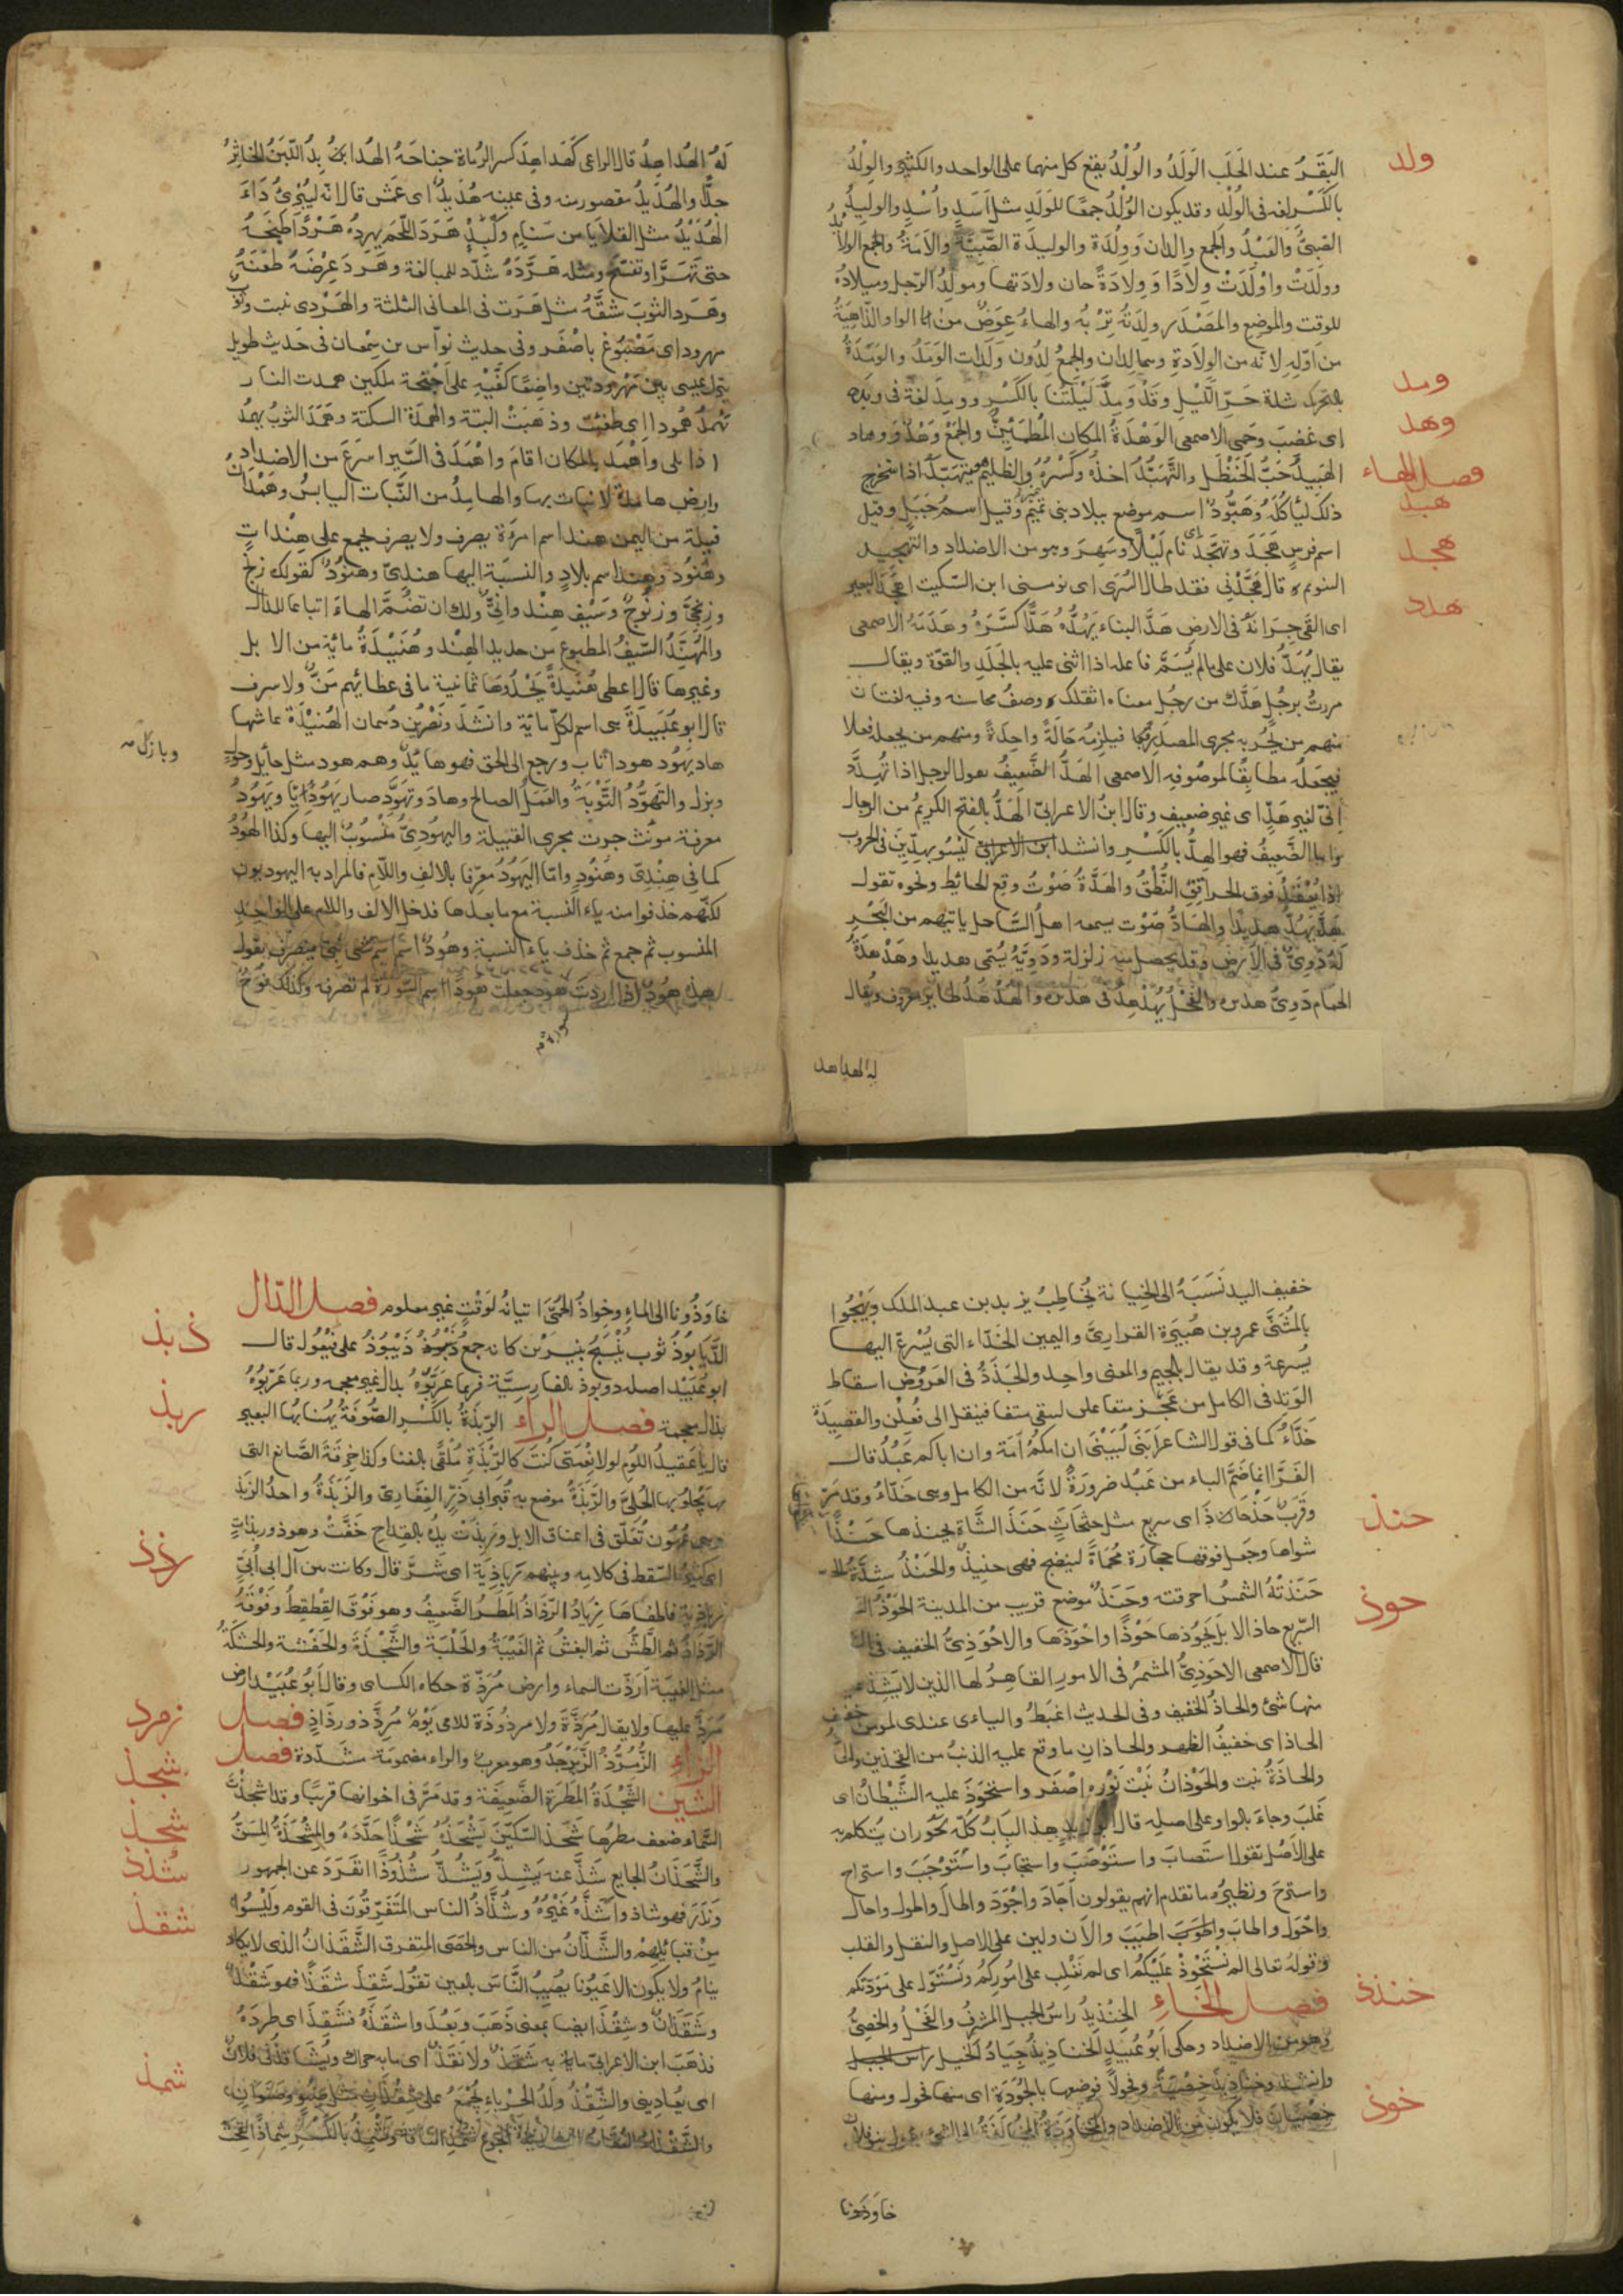 ولد
البَقَرُ عند الحَلَب الوَلَدُ والوُلْدُ يقع كل منهما على الواحد والكثير والوِلْدُ
بالكَسْر لغة فى الوُلْد وقد يكون الوُلْدُ جمعًا للوَلَدِ مثل اَسَدٍ واُسْدٍ والوليدُ
الصَبىُّ والعَبْدُ والجمع والدان ووِلْدَة والوليدة الصَّبيَّةُ والاَمَةُ والجمع الولائد
وولدَتْ واوْلَدَتْ ولادًا وَوِلادَةً حان ولادَتها ومولِدُ الرّجل وميلادُهُ
للوقت والموضع والمَصْدَر ولِدَتُهُ تِرْبُه والهاءُ عِوَضٌ من الواو الذَّاهِبَةُ
من اَوّلِه لانه من الولادةِ وهما لِدان والجمعُ لِدُون ولَدات الوَمَدُ والوَمَدَةُ
ومد
بالتحرك شدة حَرِّ اللَّيْلِ وقَدْ وَمِدَتْ لَيْلَتُنا بالكَسْرِ وومِدَ لغة فى وَبِدَ
وهد
اى غضِبَ وحَمِى الاصمعى الوَهْدَةُ المكان المُطْمَئِنُّ والجَمْعُ وَهْدٌ ووِهاد
فصل الهاء
هبد
الهَبيدُ حَبُّ الحَنْظَلِ والتَّهَبُّدُ اخذُه وكَسْرُهُ والظليم يتهَبَّد اذا استخرج
ذلك ليأكُلَهُ وهَبُّودٌ اسم موضع ببلاد بنى تميم وقيل اسمُ جَبَلٍ وقيل
هجد
اسم فرسٍ هَجَدَ وتهَجَّدَ اى نام لَيْلاً وسَهِرَ وهو من الاضداد والتهجيد
التنويم قال هَجِّدْنى فقد طال السُرَى اى نوّمنى ابن السّكيت اهجَدَ البعير
هدد
اى القى جِرَانَهُ فى الارض هَدَّ البناءَ يَهُدُّهُ هَدًّا كَسَّرَهُ وهَدَمَهُ الاصمعى
يقال يُهَدُّ فلان على ما لم يُسَمَّ فاعله اذا اثنى عليه بالجَلَدِ والقوّة ويقال
مررتُ برجُلٍ هَدَّكَ من رجُل معناه اثقلك وصفُ محاسنه وفيه لغتان
منهم من يُجْرِيه مجرى المصدر فيلزمُهُ حَالَةً واحِدَةً ومنهم من يجعله فعلا
فيجعلُهُ مطابقًا لموصُوفِه الاصمعى الهَدُّ الضَّعيفُ يقول الرجل اذا تُهُدِّدَ
اِنّى لغير هَدٍّ اى غير ضعيف وقال ابنُ الاعرابىّ الهَدُّ بالفتح الكريمُ من الرجال
واما الضَّعِيفُ فهو الهِدُّ بالكَسْرِ وانشد ابن الاعرابىّ لَيْسُوا بهِدِّينَ فى الحروب
اذا تُعْقَدُ فوق الحراقفِ النُّطُقُ والهَدَّةُ صَوْتُ وقع الحائِط ونحوه تقول
هَدَّ يَهِدُّ هديدًا والهَادُّ صَوْت يسمعه اهلُ السَّاحل ياتيهم من البَحْرِ
لَهُ دَوِىٌّ فى الاَرْضِ وقد يحصل منه زلزلة ودَوِيُّهُ يُسَمّى هديدا وهَدْهَدَةُ
الحَمَام دَوِىُّ هديره والفَحْلُ يُهَدْهِدُ فى هديره والهُدْهُدُ طائِر معروف ويقال
له الهداهد
لَهُ الهُداهِدُ قال الراعى كَهُداهِدٍ كسر الرُماة جناحَهُ الهُدابِدُ اللَبَنُ الخاثِرُ
جدًّا والهُدَبِدُ مقصور منه وفى عينه هُدَبِدٌ اى عَمَش قال انّه لَيُبْرِئُ دَاءَ
الهُدَبِدْ مثل القلايا من سَنامٍ وكَبِدْ هَرَدَ اللَّحْمَ يهرِدُه هَرْدًا طَبَخَهُ
حتى تهَرَّأ وتفسّخ ومثله هَرَّدَهُ شُدّد للمبالغة وهَرَدَ عِرْضَهُ طَعَنَهُ
وهَرَدَ الثوبَ شقَّهُ مثل هَرَتَ فى المعانى الثلثة والهِرْدَى نبت وثوب
مهرود اى مَصْبُوغ باصْفَر وفى حديث نوّاس بن سِمْعان فى حَديث طويل
ينزل عيسى بين مَهْرودتين واضِعًا كَفَّيْهِ على اَجْنِحة ملكين همدت النار
تَهْمُدُ هُمودا اى طفِئَت وذهَبَتْ البتة والهَمْدة السكتة وهَمَدَ الثوبُ يهمُدُ
اذا بلى واَهْمَدَ بالمكان اقامَ واهْمَدَ فى السَّير اسرَعَ من الاضداد
وارض هامدة لا نبات بها والهامِدُ من النَّبات اليابسُ وهَمْدَانُ
قبيلة من اليمن هند اسم امرَءة يصرف ولا يصرف يجمع على هِنْداتٍ
وهُنُود وهند اسم بلادٍ والنسبَة اليها هندىٌّ وهنودٌ كقولك زنجٌ
وزنجىٌّ وزنُوجٌ وسَيْف هِنْدوانىٌّ ولك ان تضُمَّ الهاءَ اتباعا للدال
والمُهَنَّدُ السّيفُ المطبوع من حديد الهِنْد وهُنَيْدَةُ مائة من الابل
وغيرها قال اعطى هُنَيْدةً يَحْدُوهَا ثمانية ما فى عطائِهم مَنٌّ ولا سرف
قال ابو عُبَيدَةَ هى اسم لكلّ مائة وانشَدَ ونَصْر بن دُهمان الهُنيْدَة عاشها
هاد يهُود هودا تاب ورجع الى الحق فهو هائِد وهم هود مثل حائِل وحول
وبازل
وبزل والتهوُّدُ التَّوْبَةُ والعَمَلُ الصالح وهادَ وتَهَوَّدَ صار يَهُودِيًّا ويَهُودُ
معرفة مونّث جرت مجرى القبيلة واليهُودِىُّ مَنْسُوبٌ اليها وكذا الهُودُ
كما فى هِنْدِىّ وهُنُودٍ وامّا اليَهُودُ معرّفا بالالفِ واللامِ فالمراد به اليهوديون
لكنّهم حذفوا منه ياءَ النسبة مع ما بعدها فدخل الالف واللام على الواحِدِ
المنسوب ثم جمع ثم حذف ياءَ النسبة وهُودٌ اسم نبىّ ينصرف تقول
هذه هُودٌ اذا اردتَ سورة هود فان جعلت هودًا اسم السُّورَة لم تصرفه وكذلك نُوحٌ
خفيف اليد نَسَبَهُ الى الخيانة يُخاطِبُ يزيد بن عبد الملك ويَهْجُوا
بالمُثَنَّى عمرو بن هُبَيْرَة القزارىَّ واليمين الحَذّاء التى يُسْرِعُ اليها
بسُرعة وقد يقال بالجيم والمعنى واحد والحَذَذُ فى العَرُوض اسقاط
الوَتِد فى الكامل من عَجُز متفاعلن ليبقى متفا فينقل الى فَعِلُن والقصِيدَةُ
حَذّاءُ كما فى قول الشاعر اَبَنى لُبَيْنَى ان امّكُمُ اَمَة وان اباكم عَبُدُ قال
الفَرَّا انّما ضَمَّ الباء من عَبُد ضرورَةً لانّه من الكامل وهى حَذّاءُ وقد مَرّ
حنذ
وقَرَبٌ حَذْحَاذ اى سريع مثل حَثْحَاثٍ حَنَذَ الشَّاة يحنِذها حَنْذًا
شواها وجَعَل فوقها حجارَة مُحْمَاةً لينضج فهى حنيذٌ والحَنْذُ شِدَّةُ الحَر
حَنَذَتْهُ الشمسُ احرقته وحَنَذٌ موضع قريب من المدينة الحَوْذُ
حوذ
السّريع حاذ الابلَ يَحُوذها حَوْذًا واحْوَذها والاحْوَذِىُّ الخفيف فى
قال الاصمعى الاحوَذِىُّ المشمرُ فى الامور القاهِرُ لها الذى لا يَشِذ عليه
منها شئ والحاذُ الخفيف وفى الحديث اغبَطُ اوليائى عندى لمومن خفيف
الحاذ اى خفيفُ الظهر والحاذان ما وقع عليه الذنبُ من الفخذين
والحاذَةُ نبت والحَوْذانُ نَبْت نَوْرُه اصْفَر واستَحْوَذَ عليه الشَّيْطانُ اى
غلبَ وجاءَ بالواو على اصلِه قال ابو زيد هذا البَابُ كلّه يَجوز ان يتكلم به
على الاَصْل تقول استَصابَ واستَصْوَبَ واستَجابَ واسْتَجْوَبَ واستراح
واستروحَ ونظيره ما تقدم انهم يقولون اَجادَ واَجْوَدَ واطالَ واطول واحال
واحْوَل واطابَ واطْيَبَ والاَن ولين على الاصل والنقل والقلب
وقوله تعالى الم نَسْتَحْوِذْ عَلَيْكُم اى لم نَغْلِب على اموركُم ونَسْتَوْلِ على مَوَدّتكم
خنذ
فصل الخاء الخِنْذيذُ راسُ الجبل المشرِفُ والفَحْلُ والخَصِىُّ
وهو من الاضداد وحكى اَبُو عُبَيدٍ الخناذِيذُ جِيَادُ الخيل
وانشد وخناذِيذَ خِصْيَةً وفحُولاً فوصفها بالجُوْدَة اى منها فحول ومنها
خوذ
خِصْيَان فلا يكون من الاضداد والمخاوَذَةُ المُخالَفَةُ الى الشئ يقول بنو فلان
خاوَذُونا
خاوَذُونا الى الماءِ وخِواذُ الحُمَّى اتيانُه لوَقْتٍ غير معلوم فصل الذال
ذبذ
ابو عُبَيْد اصله دوبوذ بالفارسيَّة فربّما عَرّبُوهُ بدال غير معجمة وربما عرّبُوهُ
ربذ
بذال معجمة فصل الراء الرِّبْذَةُ بالكَسْرِ الصُّوفَةُ يُهنَأ بُها البعير
قال يا عَقيدُ اللُومِ لولا نِعْمَتى كُنتَ كالرِّبْذَةِ مُلْقًى بالفنا وكذا خِرقَةُ الصَّائغ التى
يجلو بها الحُلِىَّ والرَّبَذَةُ موضع به قَبْرُ ابى ذَرٍّ الغِفَارىّ والرَّبَذَةُ واحدُ الرَّبَذ
وهى عُهُون تُعَلّق فى اعناق الابل ورَبِذَتْ يدُه بالقِداحِ خَفَّتْ وهو ذو رَبِذاتٍ
رذذ
اى كثيرُ السّقط فى كلامِه وبينهم رَباذِيَة اى شَرّ قال وكانت بين آل ابى اُبَىّ
رباذية فاطفاَها زيَادُ الرَّذاذُ المَطَرُ الضَّعِيفُ وهو فَوْقَ القِطقِطُ وفَوْقَهُ
الرَّذاذُ ثم الطَّشُّ ثم البغشُ ثم الغَبْيَةُ والحَلْبَة والشَّجْذَةُ والحَفْشة والحَشكَةُ
مثل الغبيَة اَرَذّت السماء وارض مُرَذّة حكاه الكسائى وقال اَبُو عُبَيْد ارض
زمرد
مُرَذٌّ عليها ولا يقال مُرَذَّةَ ولا مرذوذَة للاموى يَوْمٌ مُرِذٌّ ذو رذَاذٍ فصل
شجذ
الزاء الزُمُرُّذ الزَّبَرْجَدُ وهو معرب والراء مضمومة مشَدّدة فصل
الشين الشَّجْذَةُ المَطْرَة الضَّعِيفَة وقد مَرَّ فى اخواتها قريبًا وقد اشجذَتْ
شحذ
السَّماء ضعف مطرُها شَحَذَ السّكِيّنَ يَشْحَذُهُ شَحْذًا حَدَّدَهُ والمِشْحَذَةُ المِسَنُّ
شذذ
والشَّحَذَانُ الجايع شَذَّ عنه يَشِذُّ ويَشُذُّ شُذُوذًا انفَرَدَ عن الجمهور
شقذ
ونَدَرَ فهو شاذ واَشَذَّهُ غَيْرُهُ وشُذَّاذُ الناس المُتَفَرّقُونَ فى القوم ولَيْسُوا
مِنْ قبائِلهم والشَّذّانُ من الناس والحَصَى المتفرق الشَّقَذانُ الذى لا يكاد
ينامُ ولا يكون الا عَيُونا يُصِيبُ النَّاسَ بالعين تقُول شَقِذَ شَقَذًا فهو شَقِذٌ
وشَقَذَانٌ وشِقْذَ ايضا بمعنى ذَهَبَ وبَعُدَ واشقَذَهُ فشَقِذَ اى طردَهُ
شمذ
فذهَبَ ابن الاعرابىّ ما به شَقَذٌ ولا نَقَذٌ اى ما به حراك ويُشَاقِذُنى فلانٌ
اى يُعادينى والشِّقْذُ ولَدُ الحِرْباءِ يُجْمَعُ على شِقْذانٍ مثل صِنْوٍ وصِنْوانٍ